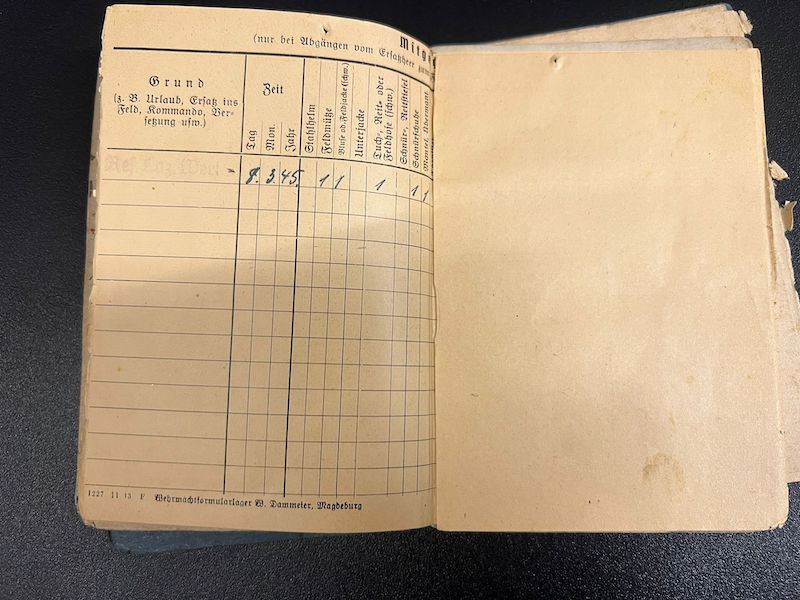 Mitg
(nur bei Abgängen vom Ersatzheer zum
Grund
(z. B. Urlaub, Ersatz ins
Feld, Kommando, Ver-
setzung usw.)
Zeit
Tag
Mon.
Jahr
Stahlhelm
Feldmütze
Bluse od. Feldjacke (schw.)
Unterjacke
Tuch-, Reit- oder
Feldhose (schw.)
Schnür-, Reitstiefel
Schnürschuhe
Mantel, Übermant.
Res. Laz. Werl - 8. 3. 45. 1 1 1 1 1
1227 11 43 F Wehrmachtformularlager W. Dammeier, Magdeburg